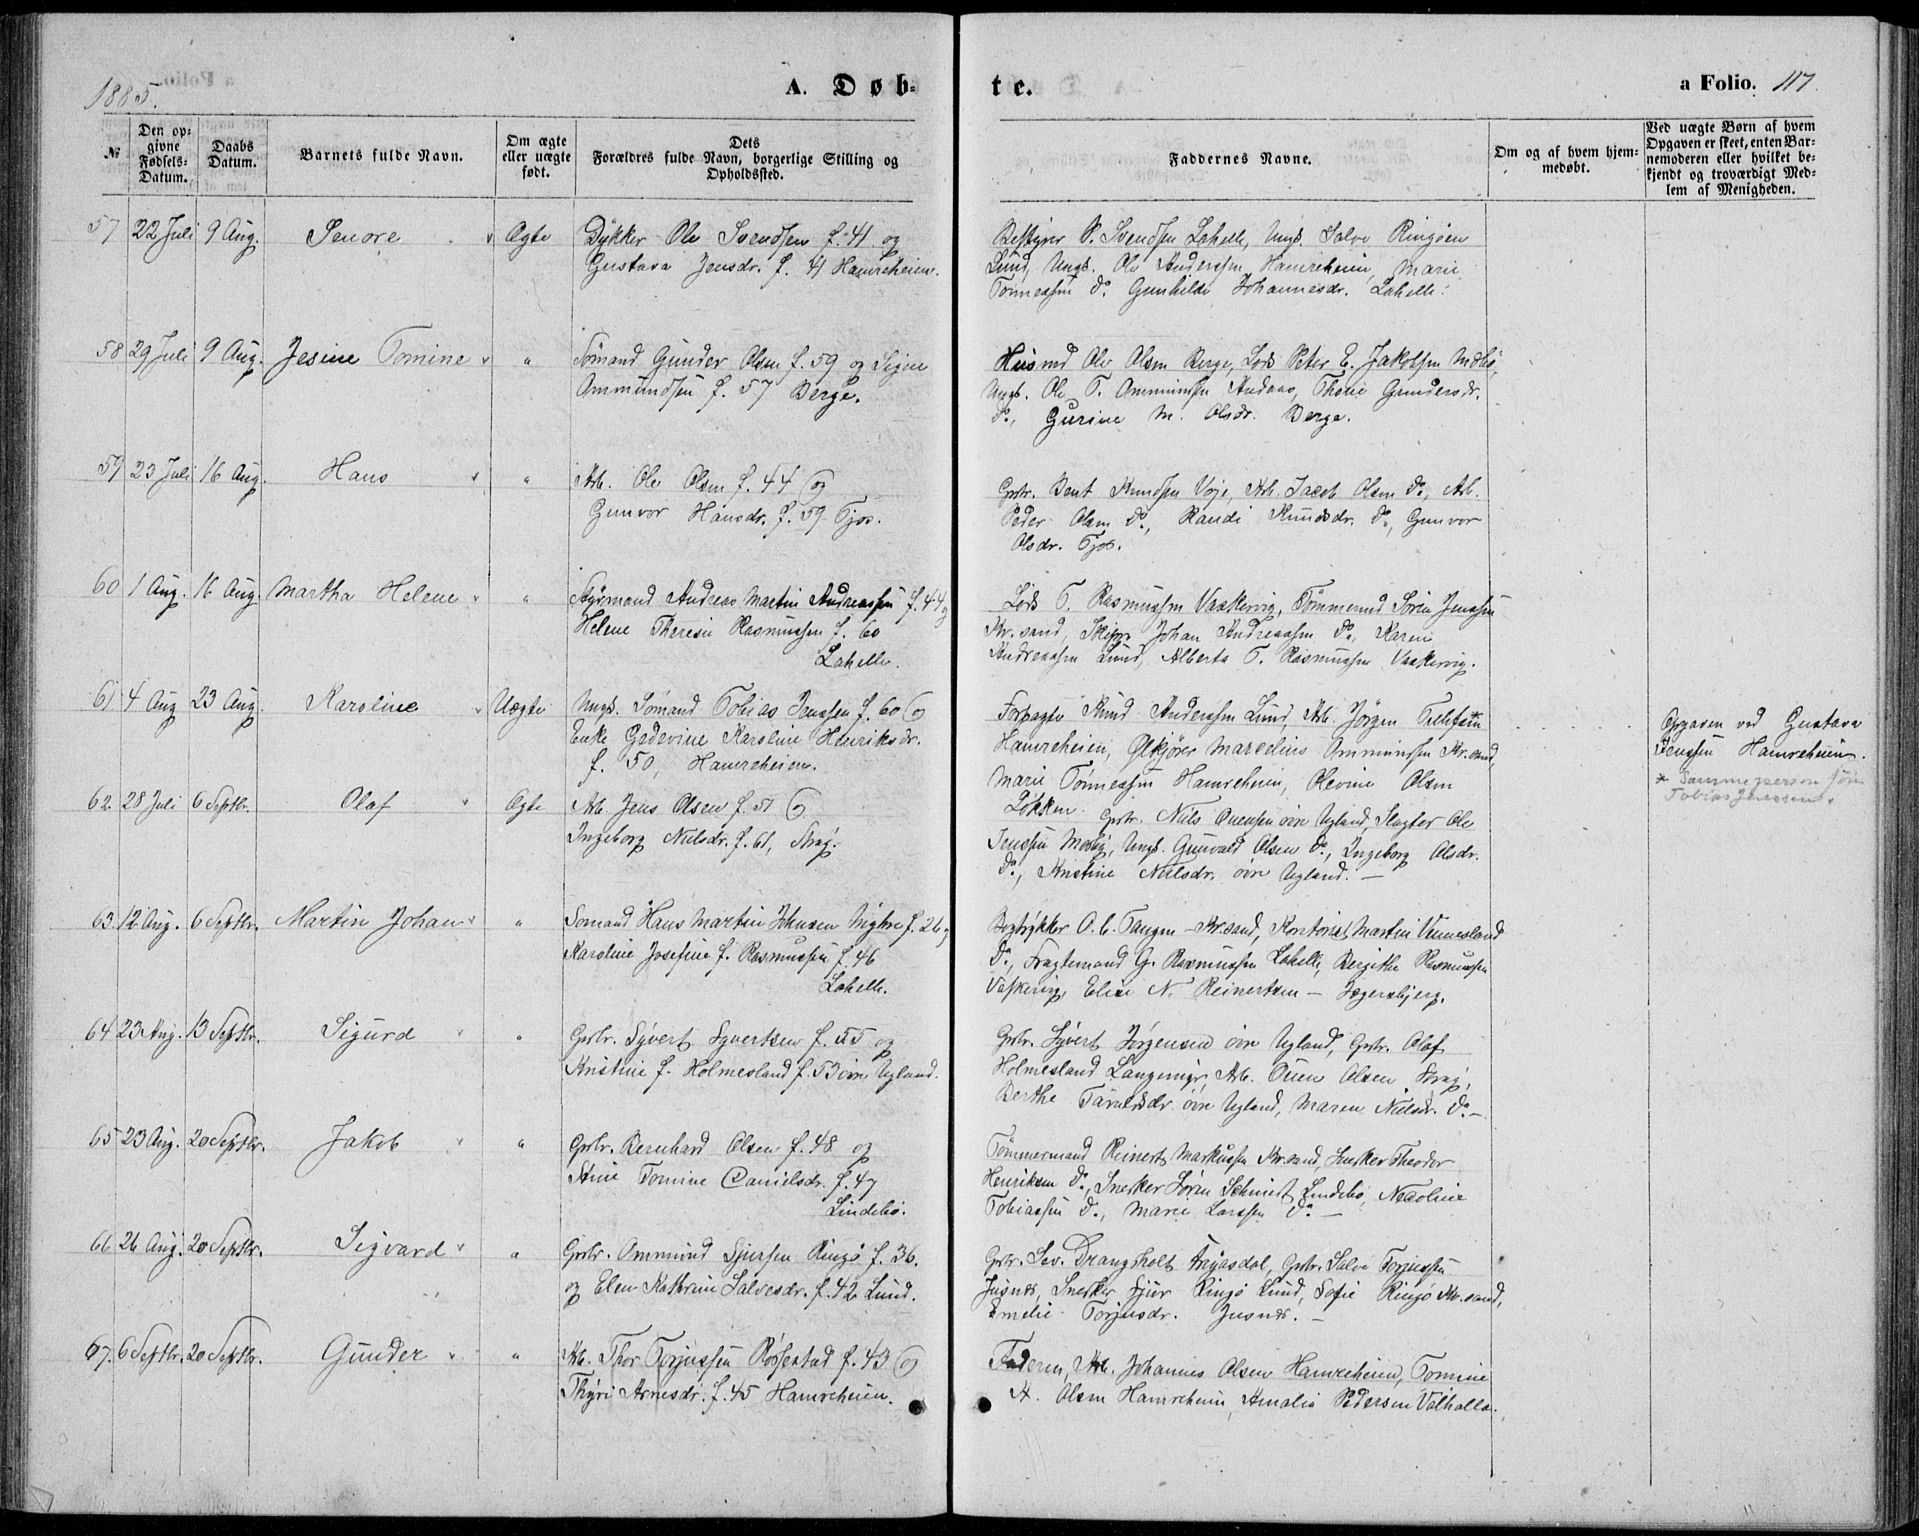 1885.
A. Døb-
te.
a Folio. 117.
№
Den op-
givne
Fødsels-
Datum.
Daabs
Datum.
Barnets fulde Navn.
Om ægte
eller uægte
født.
Dets
Forældres fulde Navn, borgerlige Stilling og
Opholdssted.
Faddernes Navne.
Om og af hvem hjem-
medøbt.
Ved uægte Børn af hvem
Opgaven er skeet, enten Bar-
nemoderen eller hvilket be-
kjendt og troværdigt Med-
lem af Menigheden.
57 22 Juli 9 Aug. Senore Ægte Dykker Ole Svendsen f. 41 og
Gustava Jensdr. f. 41 Hamreheien.
Bestyrer P. Svendsen Lahelle, Ungk. Salve Ringøen
Lund, Ungk. Ole Anderssen Hamreheien, Marie
Tønnessen do. Gunhilde Johannesdr. Lahelle.
58 29 Juli 9 Aug. Jesine Tomine " Sømand Gunder Olsen f. 59 og Signe
Ammundsen f. 57 Berge.
Husmd Ole Olsen Berge, Lods Peter E. Jakobsen
Ungk. Ole T. Ammundsen Andaas, Thorie Gundersdr.
do., Gurine M. Olsdr. Berge.
59 23 Juli 16 Aug. Hans " Arb. Ole Olsen f. 44 og
Gunvor Hansdr. f. 59 Tjos.
Grbr. Bent Knudsen Voje, Arb. Jacob Olsen do., Arb.
Peder Olsen do., Randi Knudsdr. do., Gunvor
Olsdr. Tjos.
60 1 Aug. 16 Aug. Martha Helene " Styrmand Andreas Martin Andreassen f. 44 og
Helene Theresie Rasmussen f. 60
Lahelle.
Lods T. Rasmussen Vaskervig, Tømmermd Søren Jenssen
Kr.sand, Skipp. Johan Andreassen do., Karen
Andreassen Lund, Alberta T. Rasmussen Vaskervig.
61 4 Aug 23 Aug. Karoline Uægte Ungk. Sømand Tobias Jenssen f. 60 og
Enke Gedevine Karoline Henriksdr.
f. 50, Hamreheien.
Forpagter Knud Anderssen Lund, Arb. Jørgen Tellefsen
Hamreheien, Ølkjører Marselius Ammunsen Kr.sand,
Marie Tønnessen Hamreheien, Olevine Olsen
Løkken.
Opgaven ved Gustava
Jenssen Hamreheien.
* Samme person som
Tobias Jenssen.
62 28 Juli 6 Septbr. Olaf Ægte Arb. Jens Olsen f. 51 og
Ingeborg Nielsdr. f. 61, Strag.
Grbr. Niels Ouensen øvre Ugland, Slagter Ole
Jenssen Mosby, Ungk. Gunvald Olsen do., Ingeborg Olsdr.
do., Kristine Nielsdr. øvre Ugland. —
63 12 Aug. 6 Septbr. Martin Johan " Sømand Hans Martin Johnsen f. 26 og
Karoline Josefine f. Rasmussen f. 46
Lahelle.
Bogtrykker O. C. Tangen - Kr.sand, Kontorist Martin Vennesland
do., Fragtemand G. Rasmussen Lahelle, Bergithe Rasmussen
Vaskervig, Elise N. Reinertsen — Jegersbjerg.
64 23 Aug. 13 Septbr. Sigurd " Grbr. Syvert Syvertsen f. 55 og
Kristine f. Holmesland f. 53 øvre Ugland.
Grbr. Syvert Jørgensen øvre Ugland, Grbr. Olaf
Holmesland Langemyr, Arb. Ouen Olsen Strag,
Berthe øvre Ugland, Maren Nielsdr. do. —
65 23 Aug. 20 Septbr. Jakob " Grbr. Bernhard Olsen f. 48 og
Stine Tomine Danielsdr. f. 47
Lindebø.
Tømmermand Reinert Markussen Kr.sand, Snekker Theodor
Henriksen do., Snekker Søren Schmidt Lindebø, Nicoline
Tobiassen do., Maren Larssen do. —
66 26 Aug. 20 Septbr. Sigvard " Grbr. Ommund Sjursen Ringø f. 36.
og Elen Kathrine Salvesdr. f. 42 Lund.
Grbr. Sev. Drangsholt Aagasdal, Grbr. Salve Torjussen
Justnes, Snekker Sjur Ringø Lund, Sofie Ringø Kr.sand,
Emelie Torjusdr. Justnes. —
67. 6 Septbr. 20 Septbr. Gunder " Arb. Thor Torjussen Røssestad f. 43 og
Thyri Arnesdr. f. 45 Hamreheien.
Faderen, Arb. Johannes Olsen Hamreheien, Tomine
A. Olsen Hamreheien, Amalia Pedersen Valhalla.